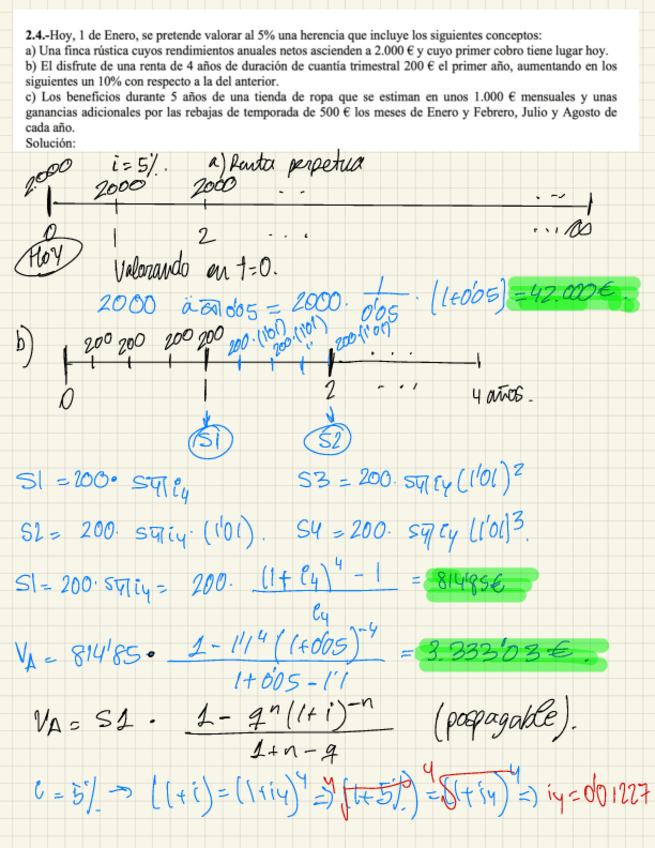 2.4.-Hoy, 1 de Enero, se pretende valorar al 5% una herencia que incluye los siguientes conceptos:
a) Una finca rústica cuyos rendimientos anuales netos ascienden a 2.000 € y cuyo primer cobro tiene lugar hoy.
b) El disfrute de una renta de 4 años de duración de cuantía trimestral 200 € el primer año, aumentando en los
siguientes un 10% con respecto a la del anterior.
c) Los beneficios durante 5 años de una tienda de ropa que se estiman en unos 1.000 € mensuales y unas
ganancias adicionales por las rebajas de temporada de 500 € los meses de Enero y Febrero, Julio y Agosto de
cada año.
Solución:
i = 5%. a) Renta perpetua
2000 2000 2000 . . . . - -
0 1 2 . . . . . . ∞
Hoy
Valorando en t=0.
2000 ä∞̅|0'05 = 2000. 1/0'05 . (1+0'05) = 42.000€.
b) 200 200 200 200 200.(1'01) 200.(1'01) '' 200.(1'01) . . . .
0 2 . . . 4 años.
S1 S2
S1 = 200. S4̅|i4 S3 = 200. S4̅|i4 (1'01)²
S2 = 200. S4̅|i4. (1'01). S4 = 200. S4̅|i4 (1'01)³.
S1 = 200. S4̅|i4 = 200. (1+i4)⁴ - 1 / i4 = 814'85€
VA = 814'85. 1-1'1⁴(1+0'05)⁻⁴ / 1+0'05-1'1 = 3.333'03€.
VA = S1 . 1-qⁿ(1+i)⁻ⁿ / 1+n-q (pospagable).
i = 5% → (1+i) = (1+i4)⁴ => ⁴√(1+5%) = ⁴√(1+i4)⁴ => i4 = 0'01227